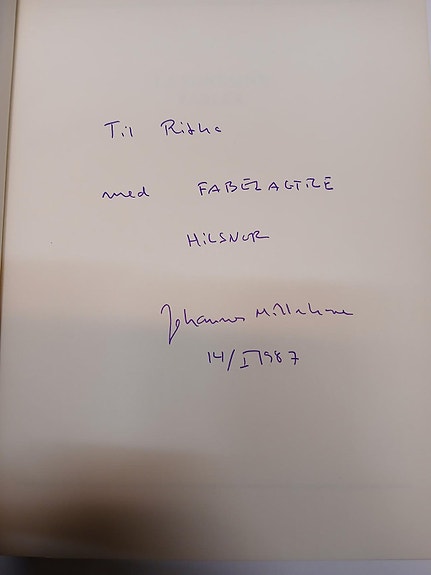 Til Ritha
med FABELAGTIGE
HILSNER
Johannes Møllehave
14/I 1987